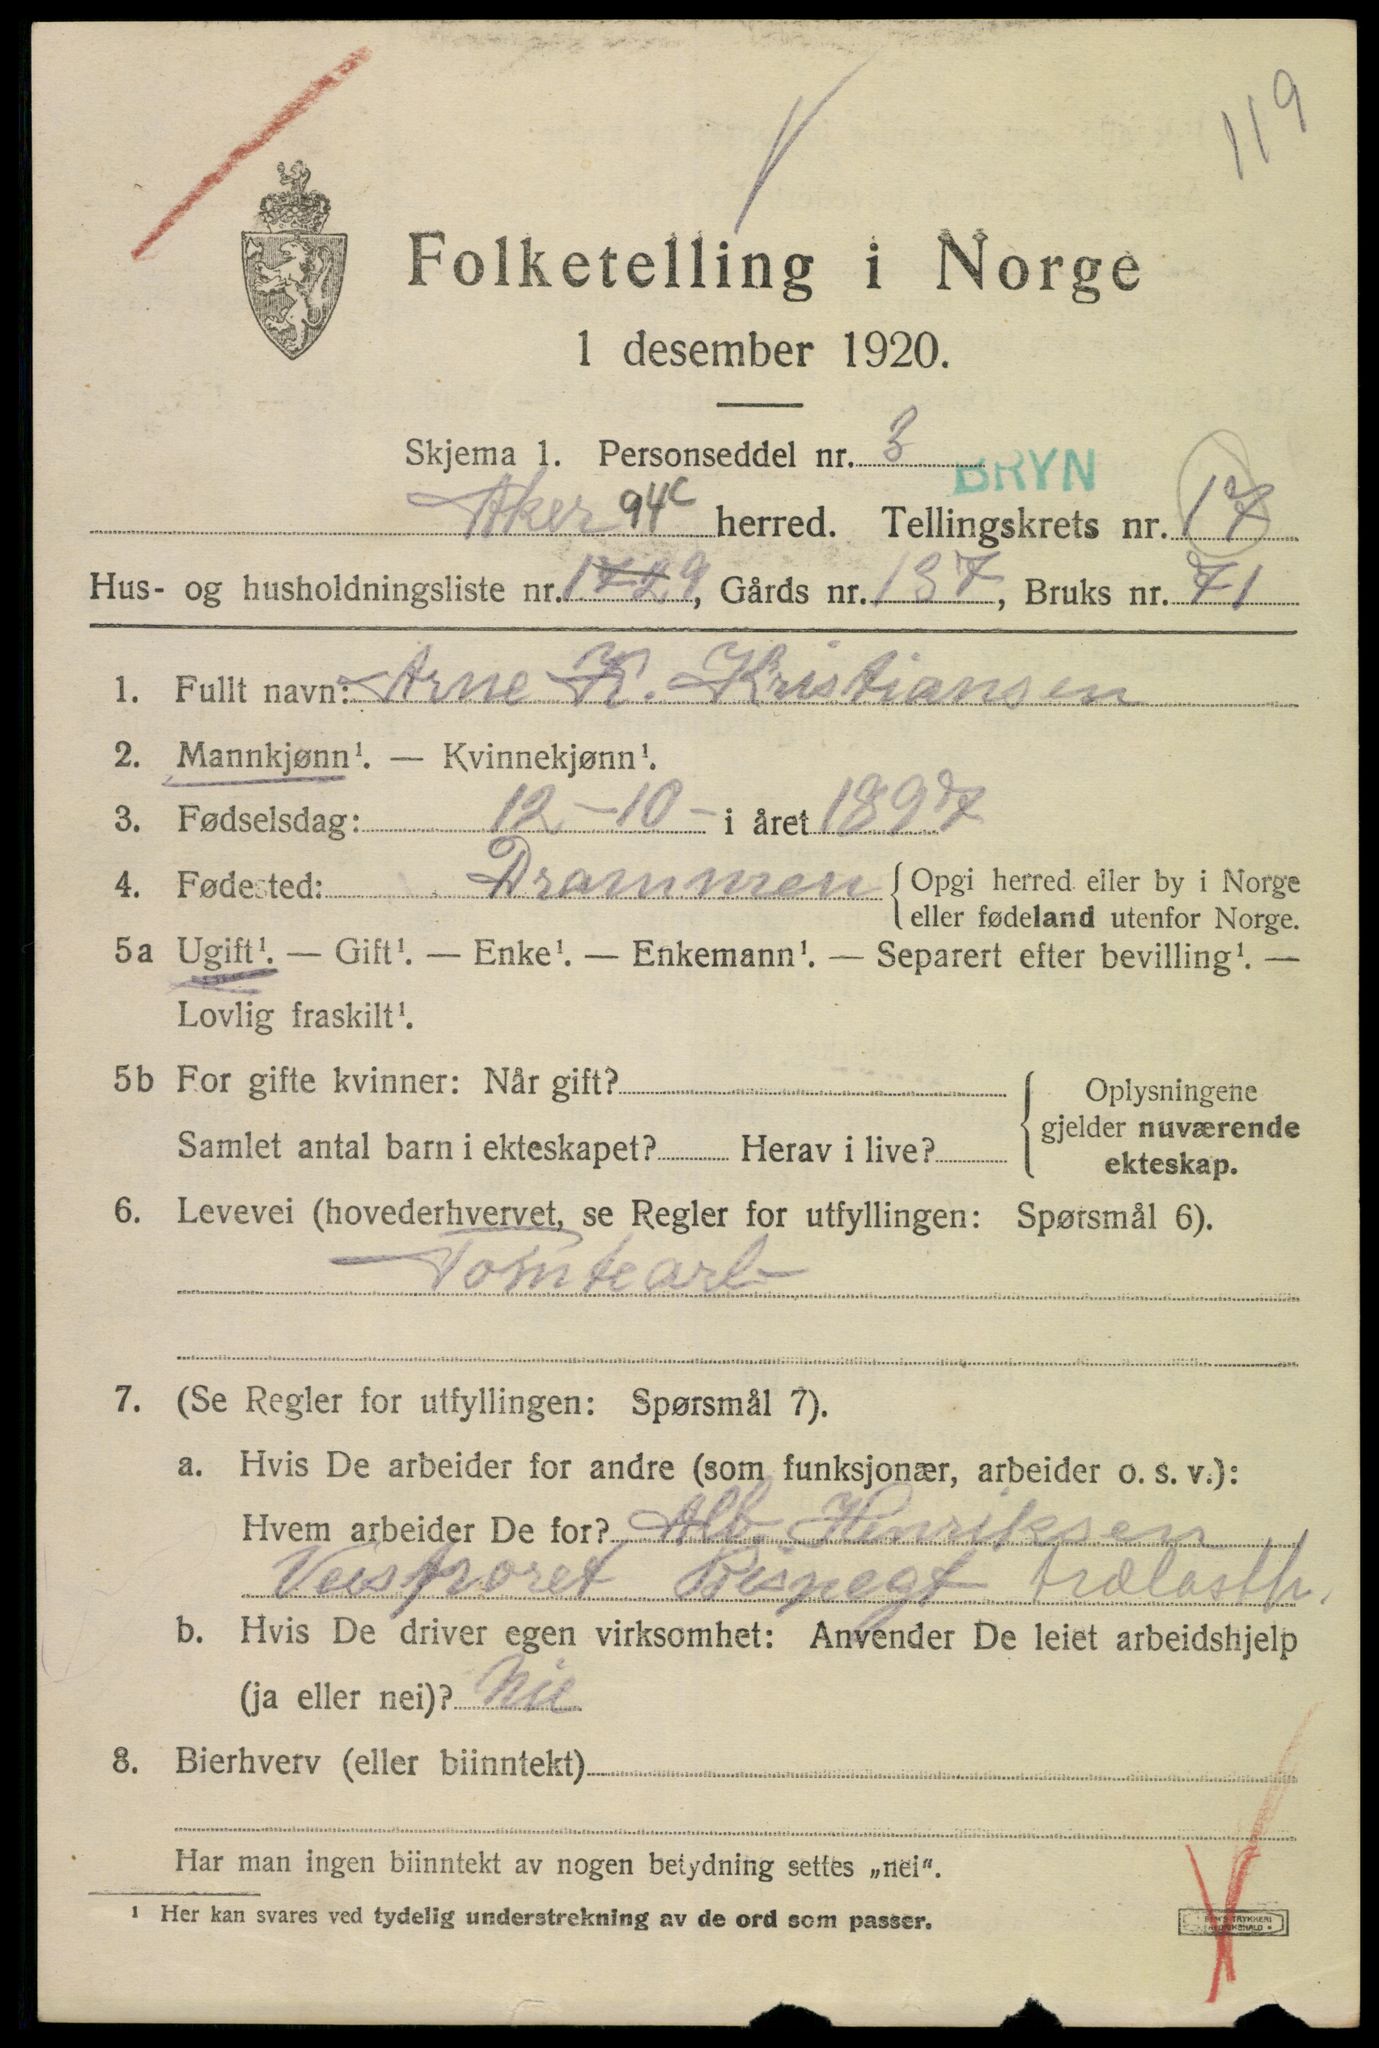 119
Folketelling i Norge
1 desember 1920.
Skjema 1. Personseddel nr. 3
BRYN
Aker 94c herred. Tellingskrets nr. 17
Hus- og husholdningsliste nr. 1729, Gårds nr. 137, Bruks nr. 71
1. Fullt navn: Arne K. Kristiansen
2. Mannkjønn¹. — Kvinnekjønn¹.
3. Fødselsdag: 12-10- i året 1897
4. Fødested: Drammen { Opgi herred eller by i Norge
eller fødeland utenfor Norge.
5a Ugift¹. — Gift¹. — Enke¹. — Enkemann¹. — Separert efter bevilling¹. —
Lovlig fraskilt¹.
5b For gifte kvinner: Når gift? { Oplysningene
gjelder nuværende
Samlet antal barn i ekteskapet? Herav i live? ekteskap.
6. Levevei (hovederhvervet, se Regler for utfyllingen: Spørsmål 6).
Tomtearb
7. (Se Regler for utfyllingen: Spørsmål 7).
a. Hvis De arbeider for andre (som funksjonær, arbeider o. s. v.):
Hvem arbeider De for? Alb. Henriksen
Bispegt trælasth.
b. Hvis De driver egen virksomhet: Anvender De leiet arbeidshjelp
(ja eller nei)? Nie
8. Bierhverv (eller biinntekt)
Har man ingen biinntekt av nogen betydning settes „nei".
¹ Her kan svares ved tydelig understrekning av de ord som passer.